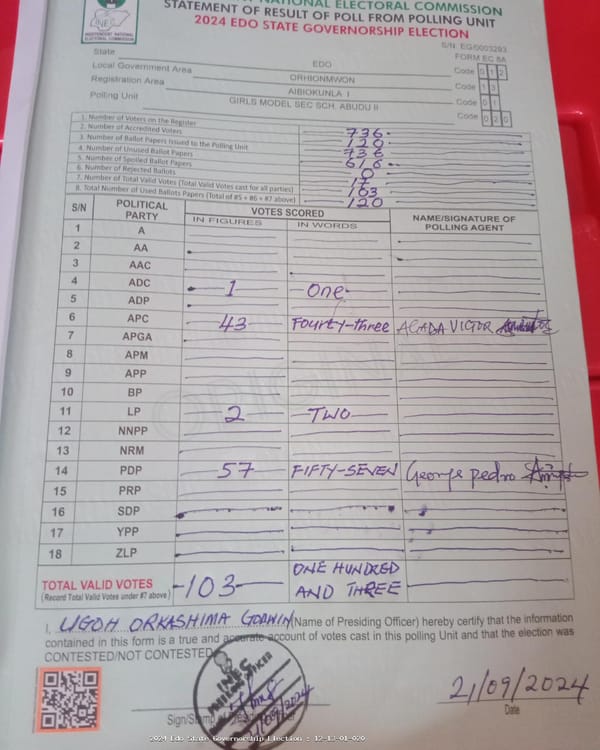 NATIONAL ELECTORAL COMMISSION
STATEMENT OF RESULT OF POLL FROM POLLING UNIT
2024 EDO STATE GOVERNORSHIP ELECTION
INEC
INDEPENDENT NATIONAL
ELECTORAL COMMISSION
S/N: EG/0003293
FORM EC 8A
State EDO Code 012
Local Government Area ORHIONMWON Code 13
Registration Area AIBIOKUNLA I Code 01
Polling Unit GIRLS MODEL SEC SCH. ABUDU II Code 020
1. Number of Voters on the Register 736
2. Number of Accredited Voters 120
3. Number of Ballot Papers Issued to the Polling Unit 736
4. Number of Unused Ballot Papers 616
5. Number of Spoiled Ballot Papers 0
6. Number of Rejected Ballots 17
7. Number of Total Valid Votes (Total Valid Votes cast for all parties) 103
8. Total Number of Used Ballots Papers (Total of #5 + #6 + #7 above) 120
S/N POLITICAL PARTY VOTES SCORED NAME/SIGNATURE OF POLLING AGENT
IN FIGURES IN WORDS
1 A
2 AA
3 AAC
4 ADC 1 One
5 ADP
6 APC 43 Fourty-three ACADA VICTOR
7 APGA
8 APM
9 APP
10 BP
11 LP 2 TWO
12 NNPP
13 NRM
14 PDP 57 FIFTY-SEVEN George Pedro
15 PRP
16 SDP
17 YPP
18 ZLP
TOTAL VALID VOTES 103 ONE HUNDRED AND THREE
(Record Total Valid Votes under #7 above)
I, UGOH ORKASHIMA GODWIN (Name of Presiding Officer) hereby certify that the information
contained in this form is a true and accurate account of votes cast in this polling Unit and that the election was
CONTESTED/NOT CONTESTED
INEC
Sign/Stamp of Presiding
21/09/2024
Date
2024 Edo State Governorship Election : 12-13-01-020